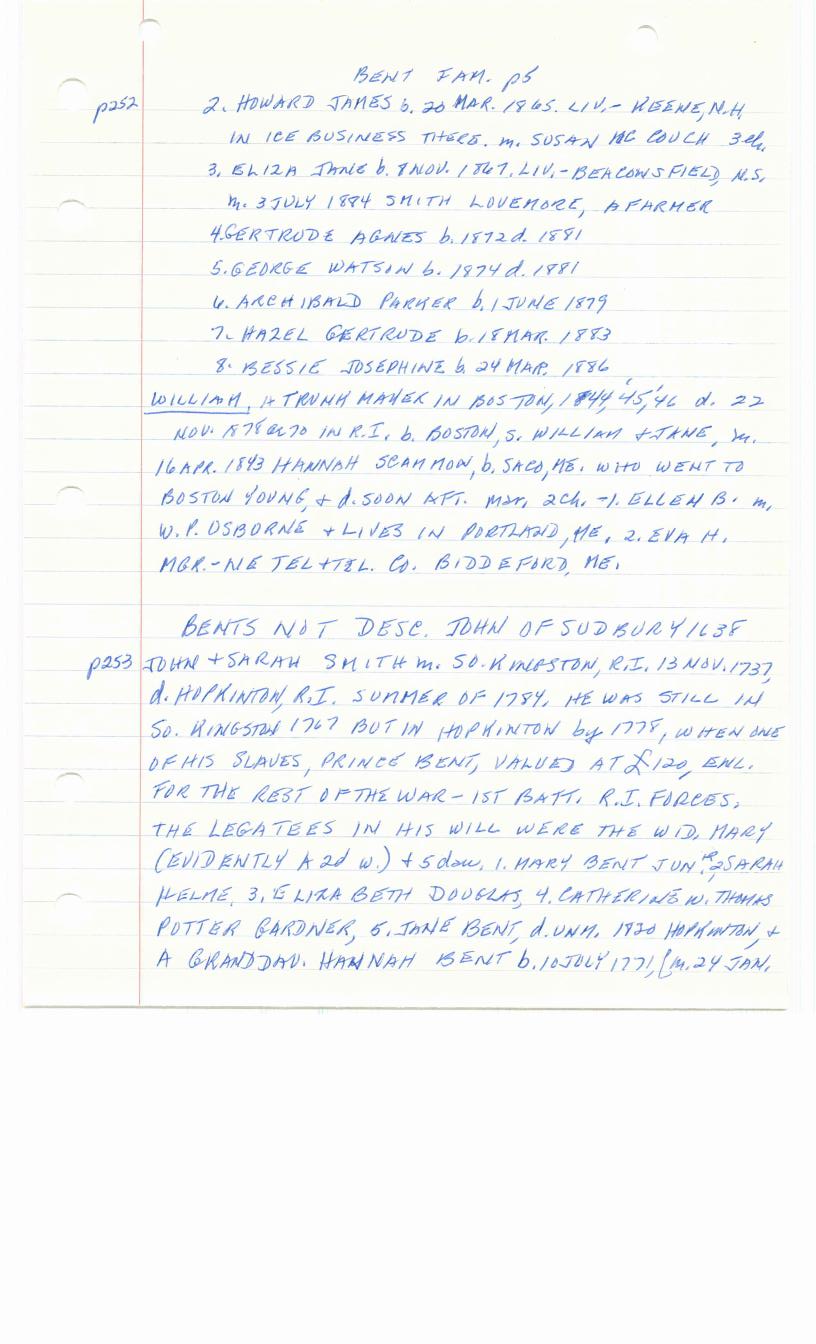 BENT FAM. p5
p252 2. HOWARD JAMES b. 20 MAR. 1865. LIV.- KEENE, N.H.
IN ICE BUSINESS THERE. m. SUSAN MC COUCH 3ch.
3. ELIZA JANE b. 8 NOV. 1867. LIV.- BEACONSFIELD, N.S.
m. 3 JULY 1884 SMITH LOVEMORE, A FARMER
4. GERTRUDE AGNES b. 1872 d. 1881
5. GEORGE WATSON b. 1874 d. 1881
6. ARCHIBALD PARKER b. 1 JUNE 1879
7. HAZEL GERTRUDE b. 18 MAR. 1883
8. BESSIE JOSEPHINE b. 24 MAR. 1886
WILLIAM, A TRUNK MAKER IN BOSTON, 1844, '45, '46 d. 22
NOV. 1878 or 70 IN R.I. b. BOSTON, s. WILLIAM + JANE, m.
16 APR. 1843 HANNAH SCAMMON, b. SACO, ME. WHO WENT TO
BOSTON YOUNG, + d. SOON AFT. mar. 2ch. -1. ELLEN B. m.
W. P. OSBORNE + LIVES IN PORTLAND, ME, 2. EVA H.
MGR.- NE TEL + TEL. CO. BIDDEFORD, ME.
BENTS NOT DESC. JOHN OF SUDBURY 1638
p253 JOHN + SARAH SMITH m. SO. KINGSTON, R.I. 13 NOV. 1737,
d. HOPKINTON, R.I. SUMMER OF 1784. HE WAS STILL IN
SO. KINGSTON 1767 BUT IN HOPKINTON by 1778, WHEN ONE
OF HIS SLAVES, PRINCE BENT, VALUED AT £120, ENL.
FOR THE REST OF THE WAR - 1ST BATT. R.I. FORCES.
THE LEGATEES IN HIS WILL WERE THE WID. MARY
(EVIDENTLY A 2d w.) + 5 dau. 1. MARY BENT JUNR, 2 SARAH
HELME, 3. ELIZA BETH DOUGLAS, 4. CATHERINE w. THOMAS
POTTER GARDNER, 5. JANE BENT, d. UNM. 1820 HOPKINTON, +
A GRANDDAU. HANNAH BENT b. 10 JULY 1771, (m. 24 JAN.